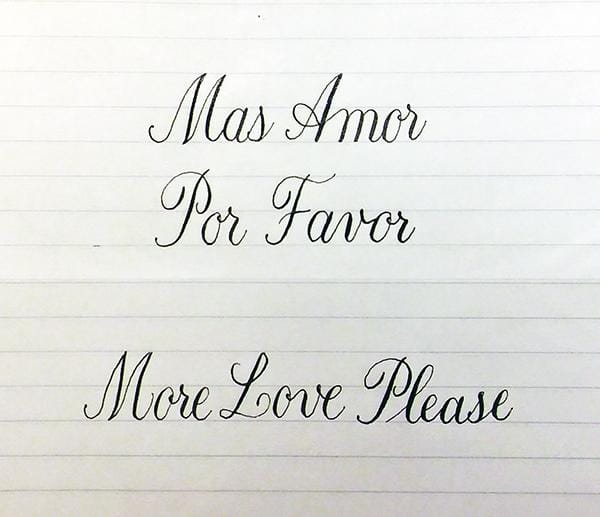 Mas Amor
Por Favor
More Love Please